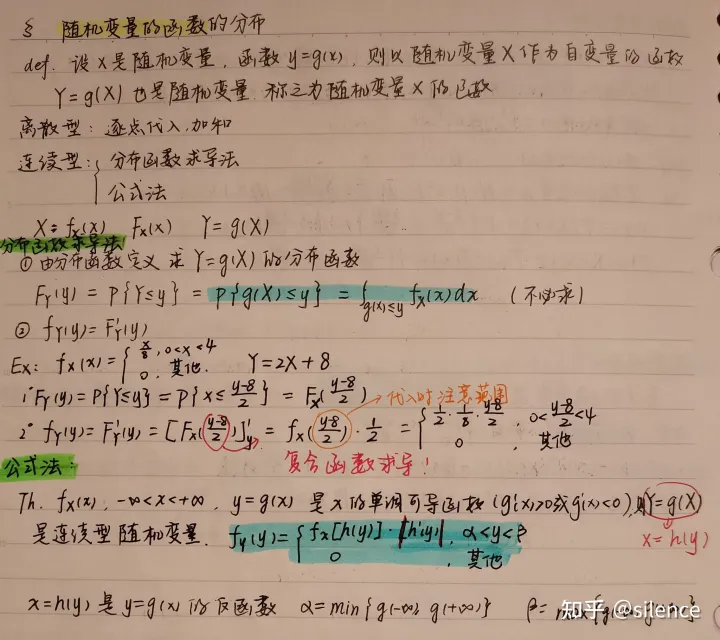 § 随机变量的函数的分布
def. 设X是随机变量,函数y=g(x),则以随机变量X作为自变量的函数
Y=g(X)也是随机变量.称之为随机变量X的函数
离散型:逐点代入,加和
连续型:{ 分布函数求导法
公式法
X: f_X(x) F_X(x) Y=g(X)
分布函数求导法
① 由分布函数定义求Y=g(X)的分布函数
F_Y(y) = P{Y≤y} = P{g(X)≤y} = ∫_{g(x)≤y} f_X(x)dx (不必求)
② f_Y(y)=F'_Y(y)
Ex: f_X(x)={ x/8, 0<x<4 Y=2X+8
0, 其他.
1° F_Y(y) = P{Y≤y} = P{X≤(y-8)/2} = F_X((y-8)/2) → 代入时注意范围
2° f_Y(y)=F'_Y(y)=[F_X((y-8)/2)]'_y = f_X((y-8)/2)·1/2 = { 1/2·1/8·(y-8)/2, 0<(y-8)/2<4
0, 其他
复合函数求导!
公式法:
Th. f_X(x), -∞<x<+∞, y=g(x)是x的单调可导函数(g'(x)>0或g'(x)<0),则Y=g(X)
是连续型随机变量. f_Y(y)={ f_X[h(y)]·|h'(y)|, α<y<β
0, 其他
x=h(y)
x=h(y)是y=g(x)的反函数 α=min{g(-∞), g(+∞)} β=max{g(
知乎 @silence